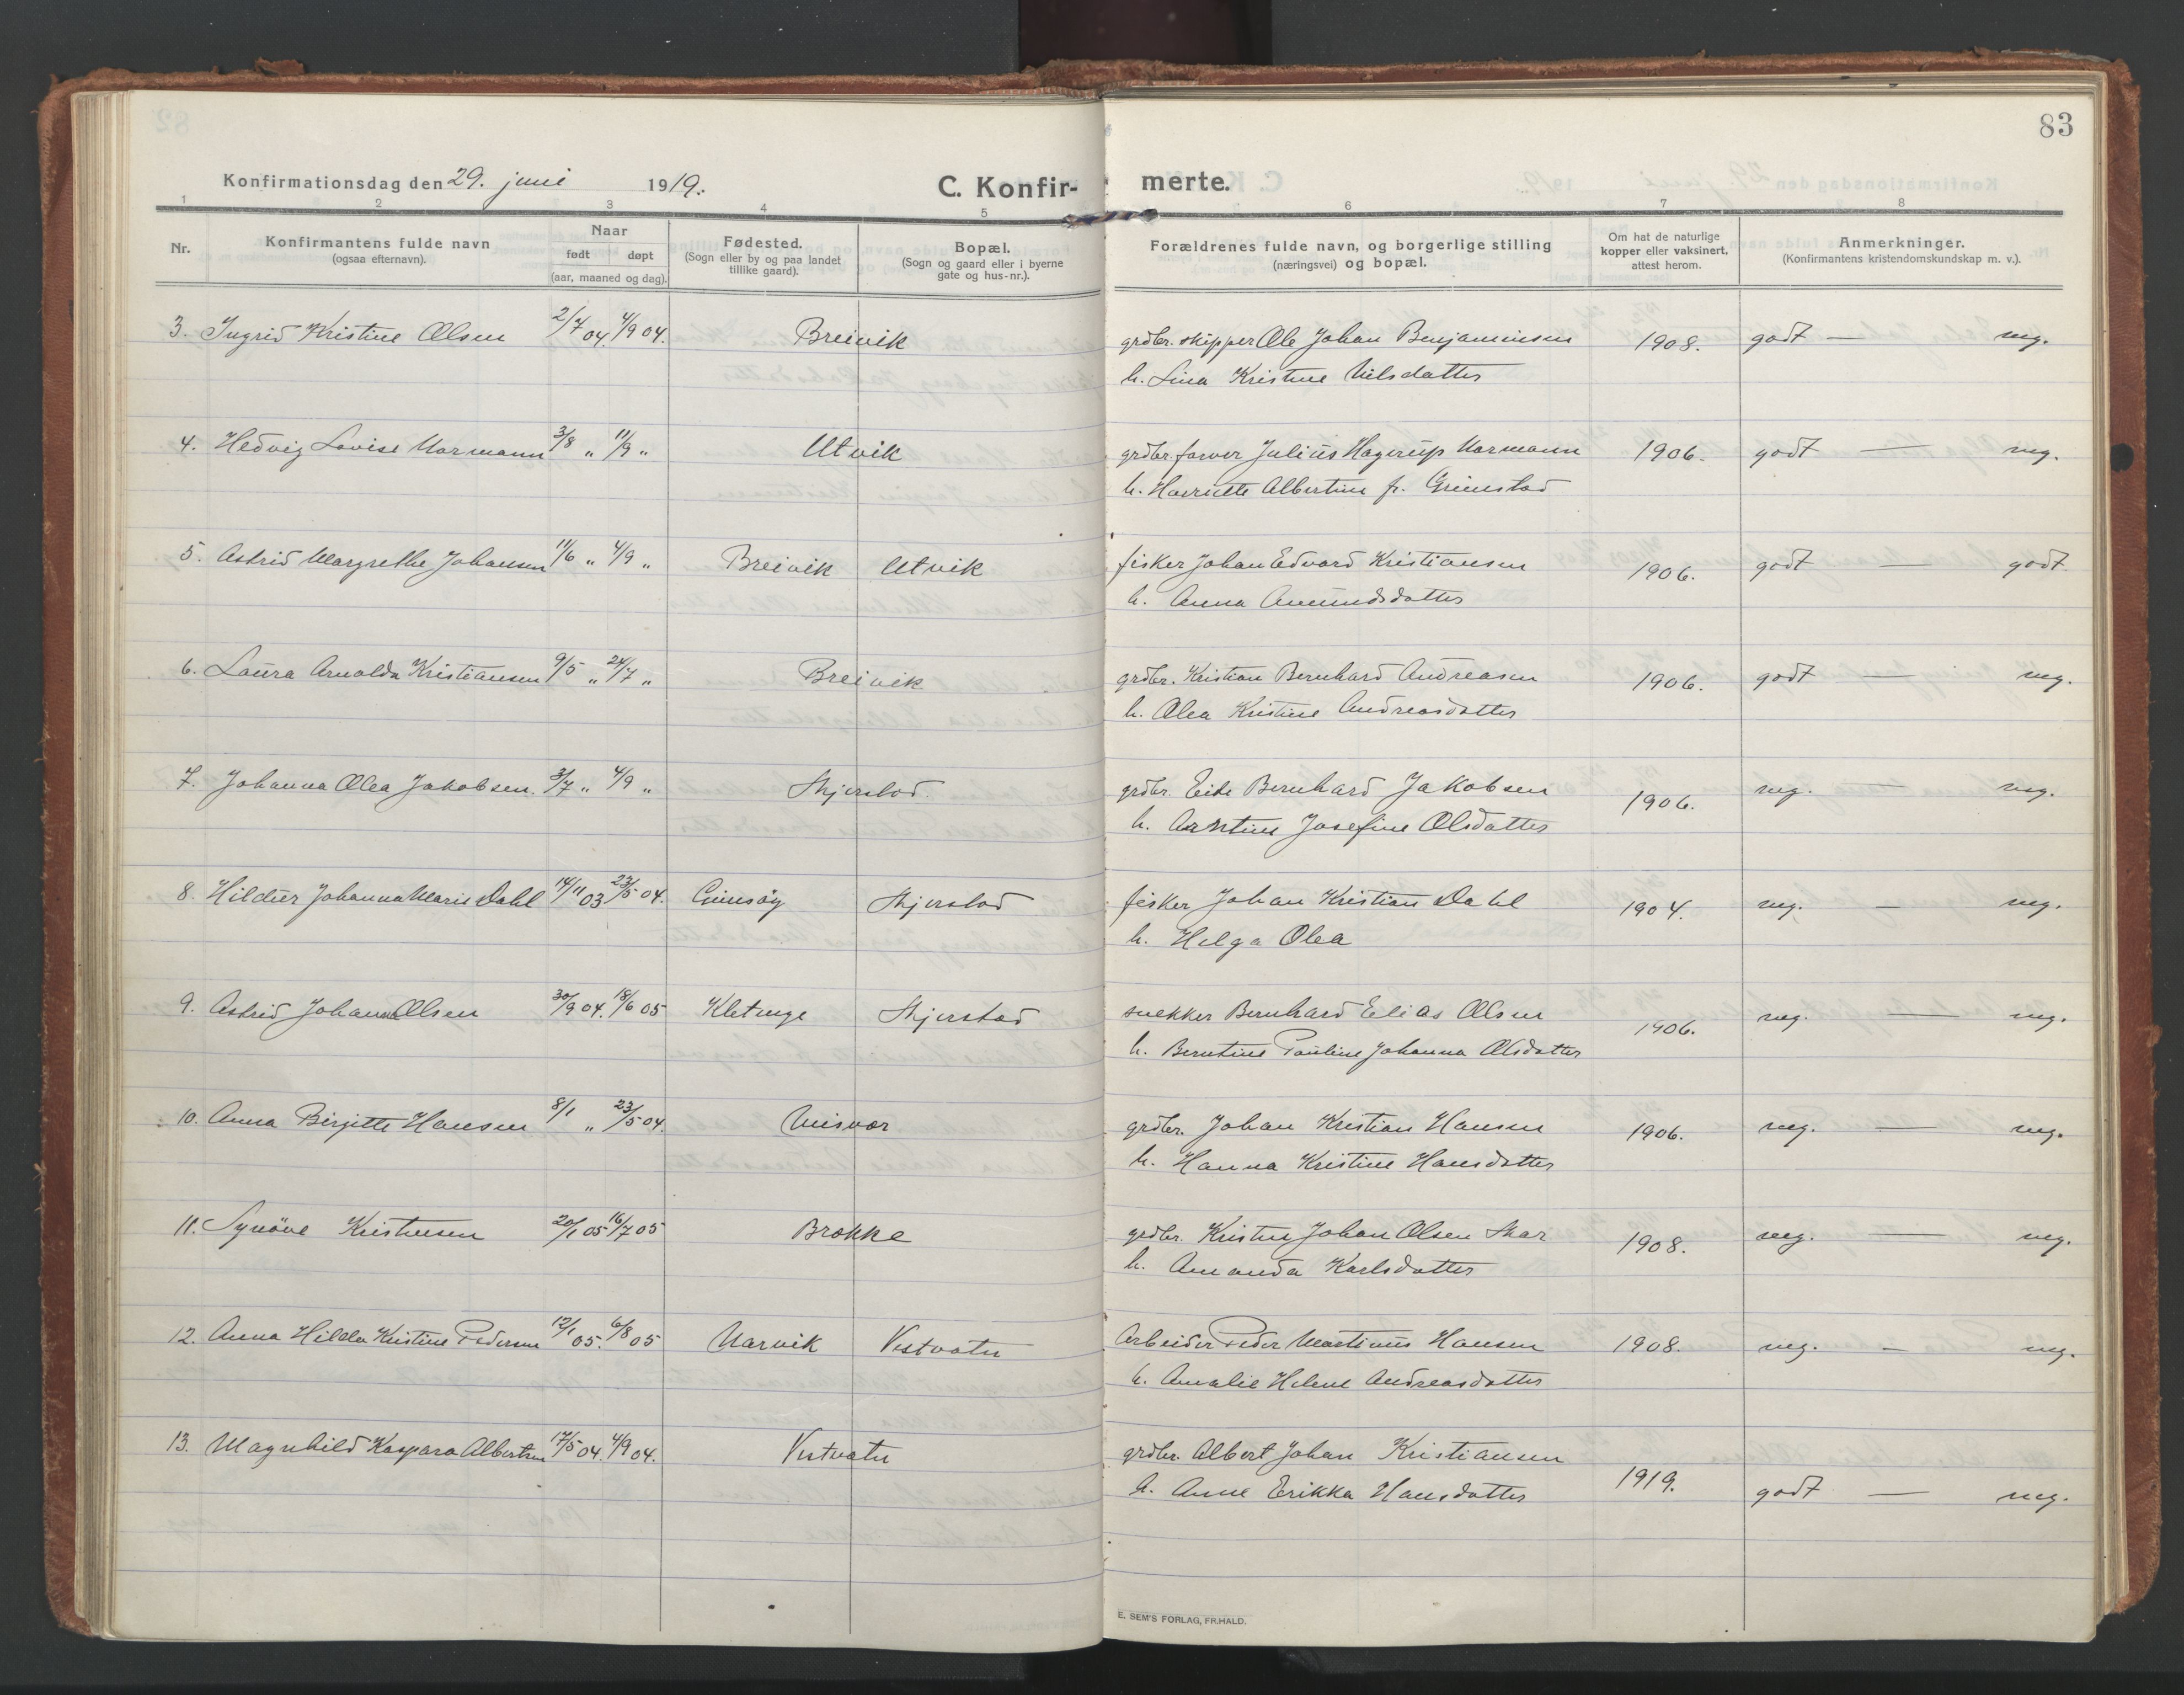 83
Konfirmationsdag den 29. juni 1919.
C. Konfir-
merte.
1 2 3 4 5 6 7 8
Nr.
Konfirmantens fulde navn
(ogsaa efternavn).
Naar
født døpt
(aar, maaned og dag).
Fødested.
(Sogn eller by og paa landet
tillike gaard).
Bopæl.
(Sogn og gaard eller i byerne
gate og hus-nr.).
Forældrenes fulde navn, og borgerlige stilling
(næringsvei) og bopæl.
Om hat de naturlige
kopper eller vaksinert,
attest herom.
Anmerkninger.
(Konfirmantens kristendomskundskap m. v.).
3. Ingrid Kristine Olsen 2/7 04. 4/9 04. Breivik grdbr. skipper Ole Johan Benjaminsen 1908. godt — mg.
h. Lina Kristine Nilsdatter
4. Hedvig Lovise Normann 3/8 „ 11/9 „ Utvik grdbr. farver Julius Hagerup Normann 1906. godt — mg.
h. Harriette Albertine f. Grimstad
5. Astrid Margrethe Johansen 11/6 „ 4/9 „ Breivik Utvik fisker Johan Edvard Kristiansen 1906. godt — godt
h. Anna Amundsdatter
6. Laura Arnolda Kristiansen 9/5 „ 24/7 „ Breivik grdbr. Kristian Bernhard Andreasen 1906. godt — mg.
h. Olea Kristine Andreasdatter
7. Johanna Olea Jakobsen. 3/7 „ 4/9 „ Skjerstad. grdbr. Eide Bernhard Jakobsen 1906. mg. — mg.
h. Arntine Josefine Olsdatter
8. Hildur Johanna Marie Dahl 14/11 03 23/5 04. Gimsøy Skjerstad fisker Johan Kristian Dahl 1904. mg. — mg.
h. Helga Olea
9. Astrid Johanna Olsen 30/9 04. 18/6 05 Kletinge Skjerstad snekker Bernhard Elias Olsen 1906. mg. — mg.
h. Berntine Pauline Johanna Olsdatter
10. Anna Birgitte Hansen 8/1 „ 23/5 04. Misvær grdbr. Johan Kristian Hansen 1906. mg. — mg.
h. Hanna Kristine Hansdatter
11. Synöve Kristensen 20/1 05 16/7 05 Brække grdbr. Kristen Johan Olsen Skar 1908. mg. — mg.
h. Amanda Karlsdatter
12. Anna Hilda Kristine Pedersen 12/1 05. 6/8 05 Narvik Vestvatn Arbeider Peder Martinus Hansen 1908. mg. — mg.
h. Amalie Helene Andreasdatter
13. Magnhild Kaspara Albertsen 17/5 04. 4/9 04. Vestvatn grdbr. Albert Johan Kristiansen 1919. godt — mg.
h. Anne Erikka Hansdatter
E. SEM'S FORLAG, FR.HALD.